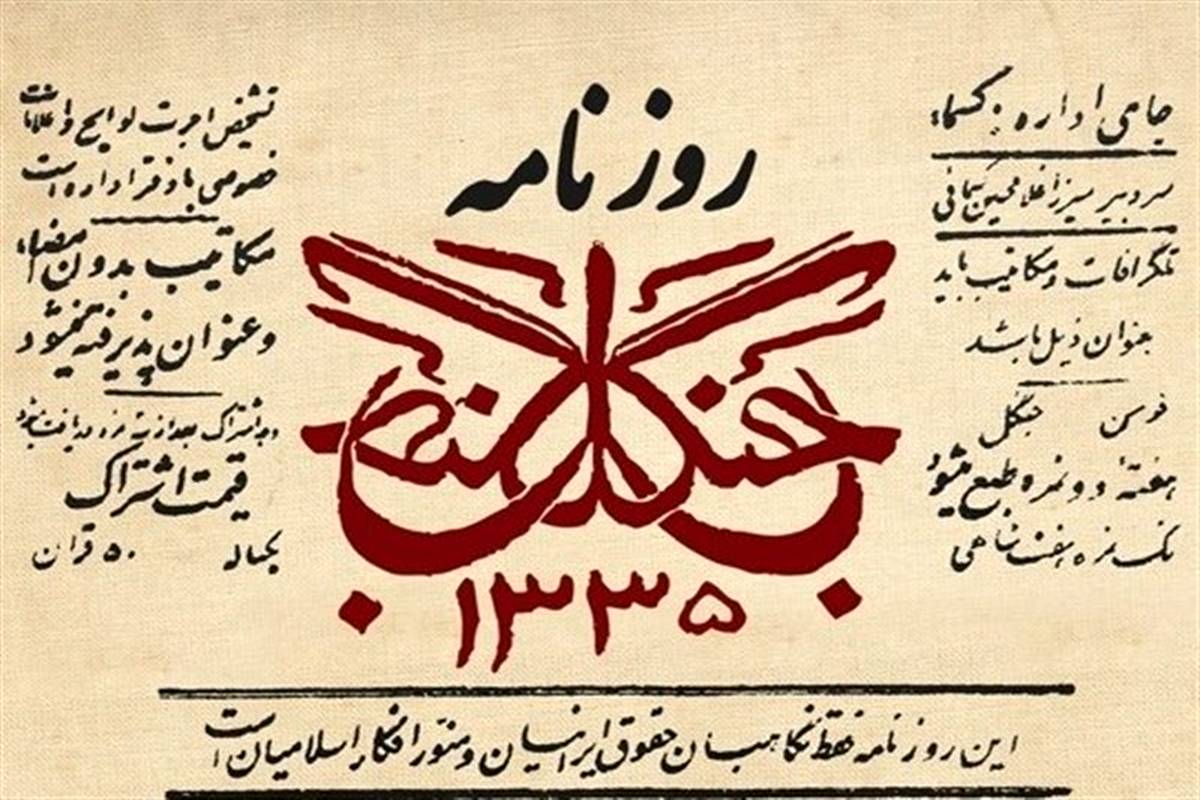 روزنامه
جنگل
۱۳۳۵
جای اداره: کسماء
سردبیر میرزا غلامحسین کسمائی
تلگرافات و مکاتیب باید
بعنوان ذیل باشد
فومن جنگل
هفتهٔ دو نمره طبع میشود
تک نمره هفت شاهی
تشخیص اجرت لوایح و اعلانات
خصوصی با دفتر اداره است
مکاتیب بدون امضاء
و عنوان پذیرفته نمیشود
وجه اشتراک بعد از نمره دریافت میشود
قیمت اشتراک
یکساله ۵۰ قران
این روزنامه فقط نگاهبان حقوق ایرانیان و منور افکار اسلامیان است